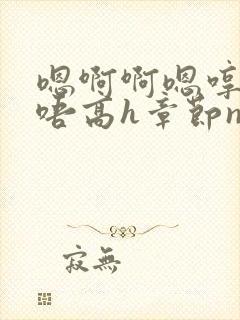 嗯啊啊嗯哼
唔高h章節n
寂無